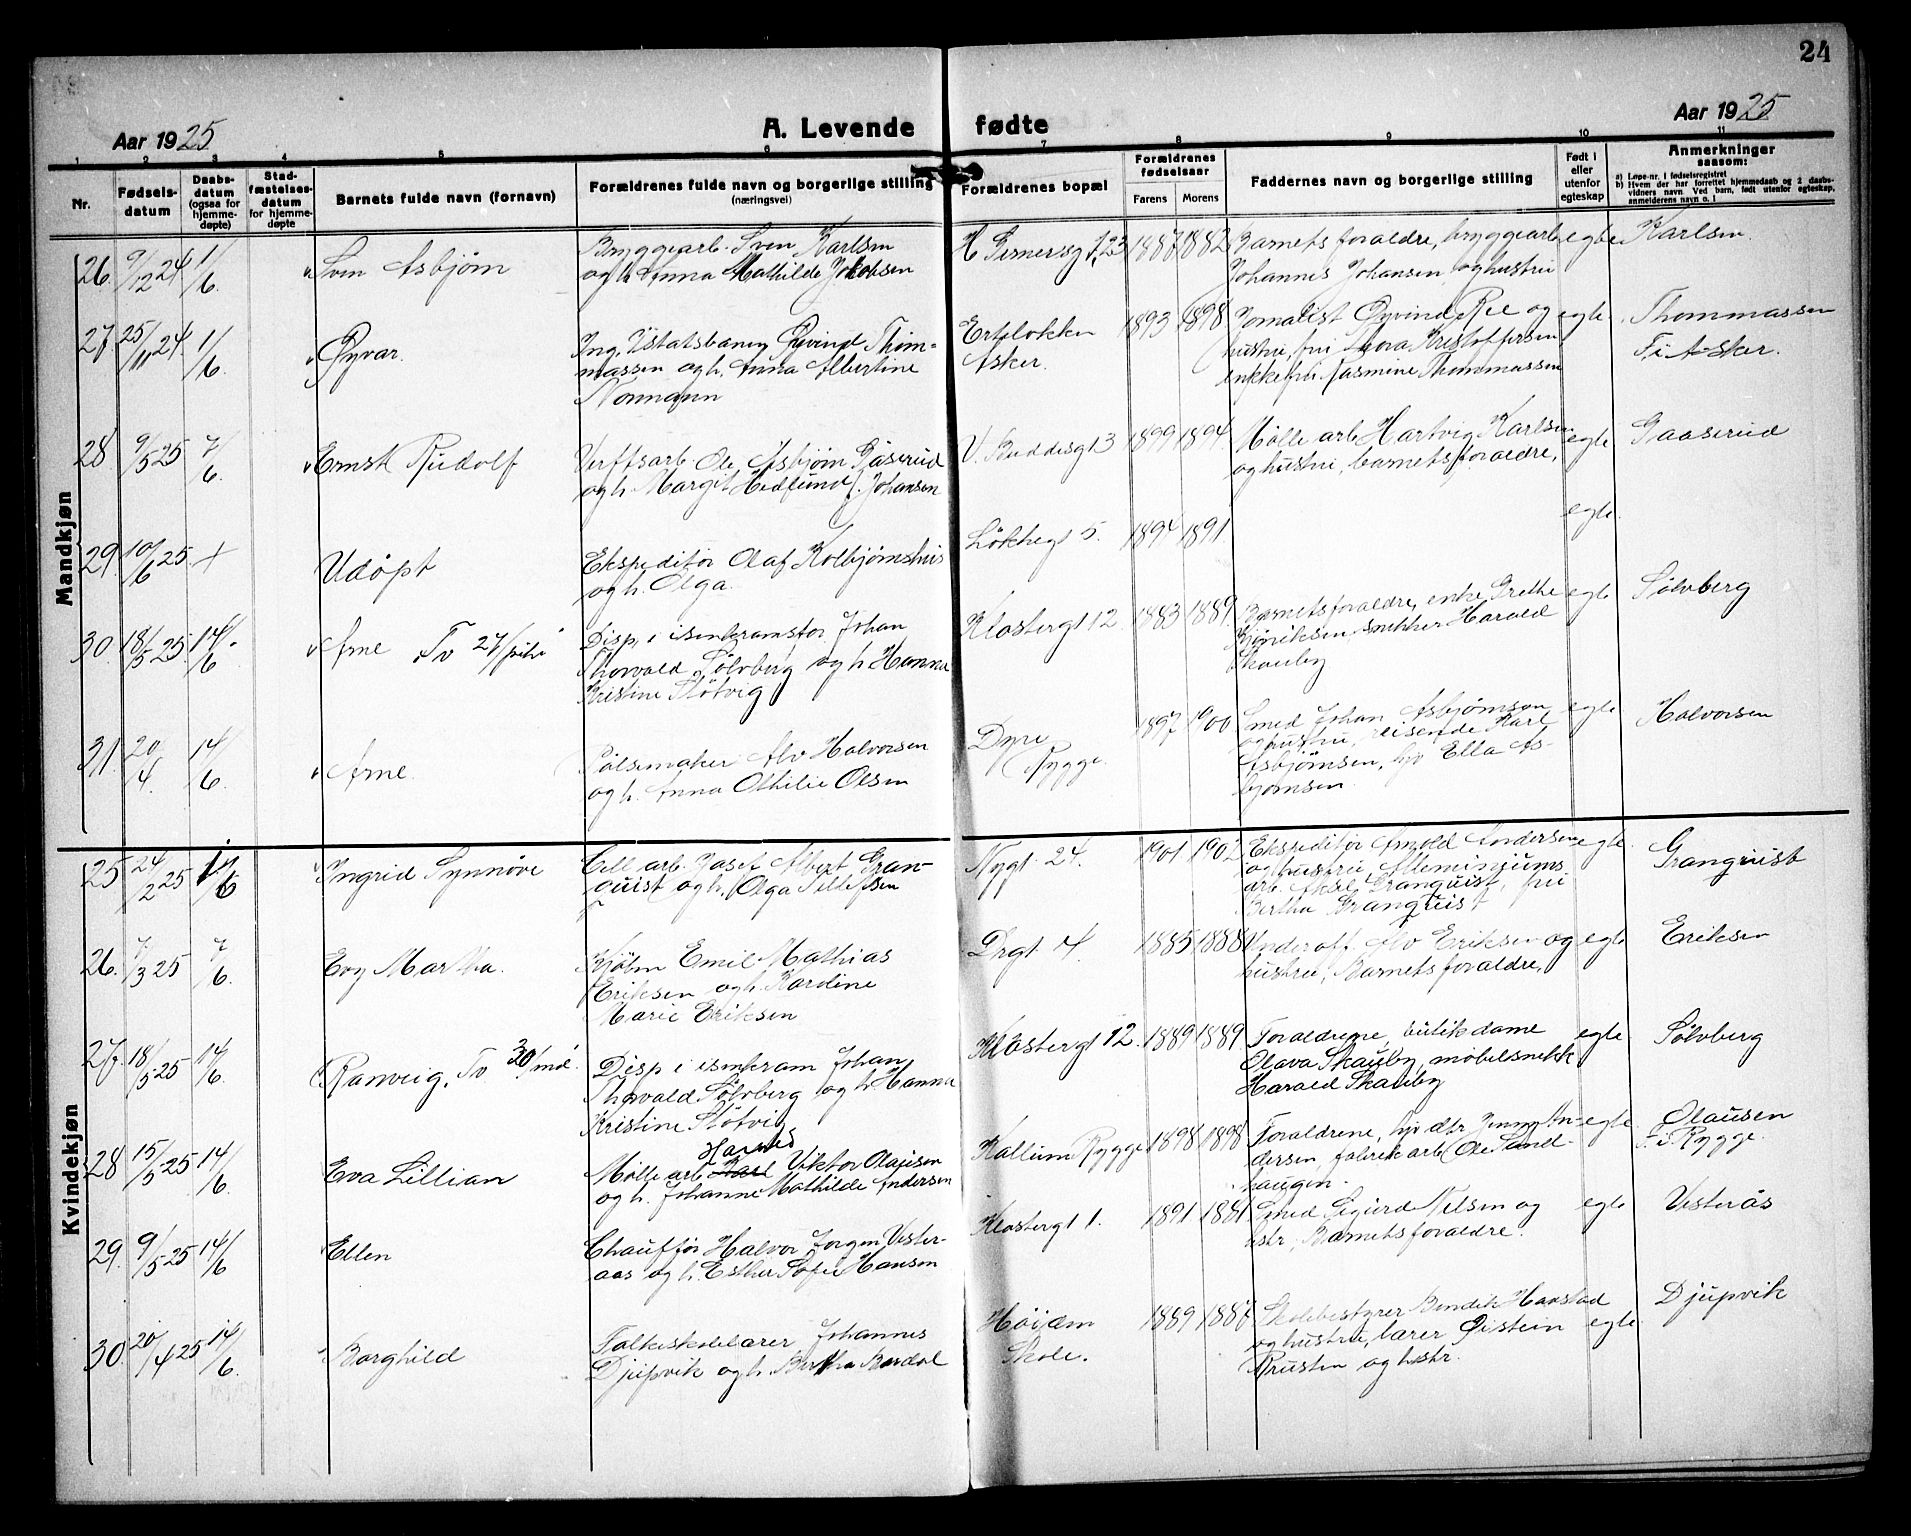 24
Aar 1925
A. Levende fødte
Aar 1925
1 2 3 4 5 6 7 8 9 10 11
Nr.
Fødsels-
datum
Daabs-
datum
(ogsaa for
hjemme-
døpte)
Stad-
fæstelses-
datum
for hjemme-
døpte
Barnets fulde navn (fornavn)
Forældrenes fulde navn og borgerlige stilling
(næringsvei)
Forældrenes bopæl
Forældrenes
fødselsaar
Farens Morens
Faddernes navn og borgerlige stilling
Født i
eller
utenfor
egteskap
Anmerkninger
saasom:
a) Løpe-nr. i fødselsregistret
b) Hvem der har forrettet hjemmedaab og 2 daabs-
vidners navn. Ved barn, født utenfor egteskap,
anmelderens navn o. l
Mandkjøn
26. 9/12 24 1/6 Sven Asbjørn
Bryggearb. Sven Karlsen
og h. Anna Mathilde Jakobsen
1887 1882
Barnets foraldre, bryggearb.
Johannes Johansen og hustru
egte Karlsen
27. 25/11 24 1/6 Øyvar.
Ing. v Statsbanen Øyvind Thom-
massen og h. Anna Albertine
Normann
Asker.
1893 1898
Jornalist Øyvind Ree og
hustru, fru Thora Kristoffersen
enkefru Jasmine Thommassen
egte Thommassen
F. i Asker.
28 9/5 25 7/6 Ernst Rudolf
Verftsarb. Ole Asbjørn Gåserud
og h. Margit Hedlund f. Johansen
V. Buddesgt 3
1899 1894
Mølle arb Hartvig Karlsen
og hustru, barnets foraldre,
egte Gaaserud
29. 10/6 25. + Udøpt
Ekspeditør Olaf Kolbjørnshus
og h. Olga.
Løkkegt 5.
1894 1891
egte
30. 18/5 25 14/6 Arne Tv 27/
Disp. i isenkramsfor Johan
Thorvald Sølvberg og h. Hanna
Kristine Støtvig
Klostergt 12
1883 1889
Barnets foraldre, enke Grethe
snekker Harald
Skauby
egte Sølvberg
31. 20/4. 14/6 Arne.
Pølsemaker Alv Halvorsen
og h. Anna Othilie Olsen
Dyre
Rygge.
1897 1900
Smed Johan Asbjørnsen
og hustru, reisende Karl
Asbjørnsen, hjv Ella As-
bjørnsen.
egte Halvorsen
Kvindekjøn
25 24/2 25 14/6 Ingrid Synnøve
Cell arb. Josef Albert Gran-
quist og h. Olga Tillefsen
Nygt 24.
1901 1902
Ekspeditør Arnold Andersen
og hustru, Alleminjums
arb. Aksel Granquist, fru
Bertha Granquist
egte Granquist
26. 7/3 25 7/6 Evy Martha.
Kjøbm Emil Mathias
Eriksen og h. Kardine
Marie Eriksen
Drgt 4.
1885 1888
Underoff. Alv Eriksen og
hustru, Barnets foraldre,
egte Eriksen
27. 18/5 25 14/6 Ranveig, Tv 30/md.
Disp i isenkram Johan
Thorvald Sølvberg og h. Hanna
Kristine Støtvig
Klostergt 12.
1889 1889
Foraldrene, butikdame
Olava Skauby, møbelsnekk
Harald Skauby
egte Sølvberg
28 15/5 25 14/6 Eva Lillian
Mølle arb Viktor Olausen
og h. Johanne Mathilde Andersen
Kallum Rygge
1898 1898
Foraldrene, hjv dtr Jenny An-
dersen, fabrik arb Ole Sand-
haugen.
egte Olausen
F. i Rygge.
29. 9/5 25 14/6 Ellen
Chauffør Halvor Jørgen Vester-
aas og h. Esther Sofie Hansen
Klostergt 1.
1891 1881
Smed Sigurd Nilsen og
ustr, Barnets foraldre.
egte Vesterås
30. 20/4 25 14/6 Borghild
Folkeskolelærer Johannes
Djupvik og h. Bertha Bardal
Høiden
Skole.
1889 1887
Skolebestyrer Bendik Havstad
og hustru, lærer Øistein
Krusten og hustr.
egte Djupvik